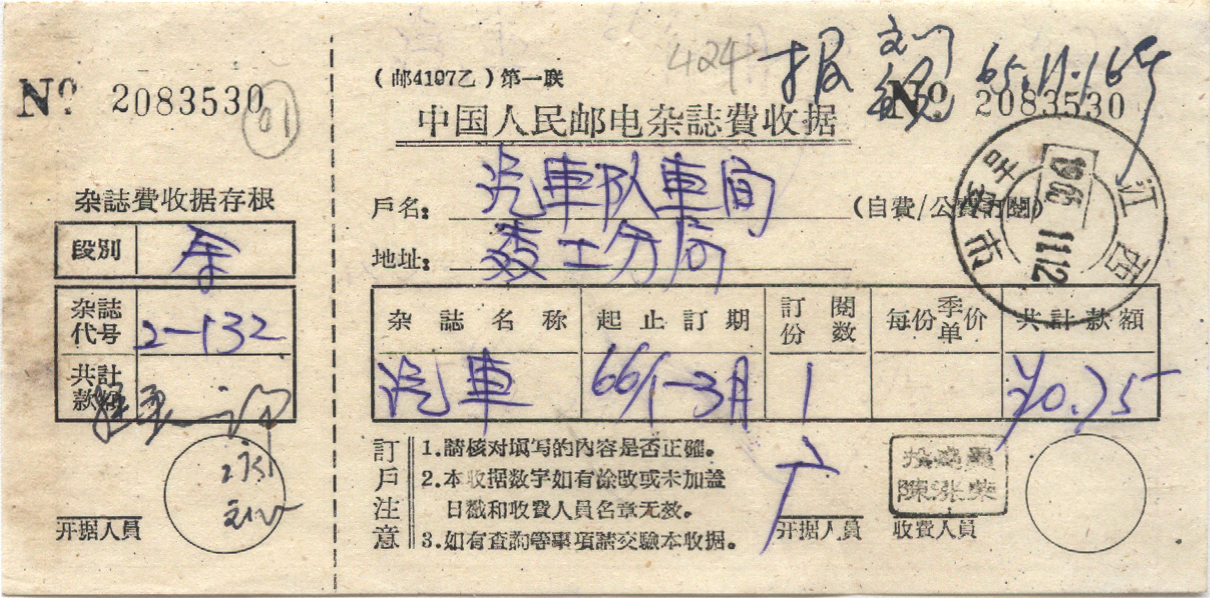 № 2083530
01
杂誌費收据存根
段別
杂誌代号 2-132
共計款額
开据人員
424
(邮4197乙)第一联
№ 2083530
65.11.16
中国人民邮电杂誌費收据
戶名: 汽車队車间 (自費/公費訂閱)
地址: 分局
江西
1965.11.12
杂誌名称 起止訂期 訂閱份数 每份季单价 共計款額
汽車 66/1-3月 1 ¥0.75
訂戶注意
1.請核对填写的內容是否正確。
2.本收据数字如有塗改或未加盖
日戳和收費人員名章无效。
3.如有查詢等事項請交驗本收据。
开据人員 收費人員
投遞員